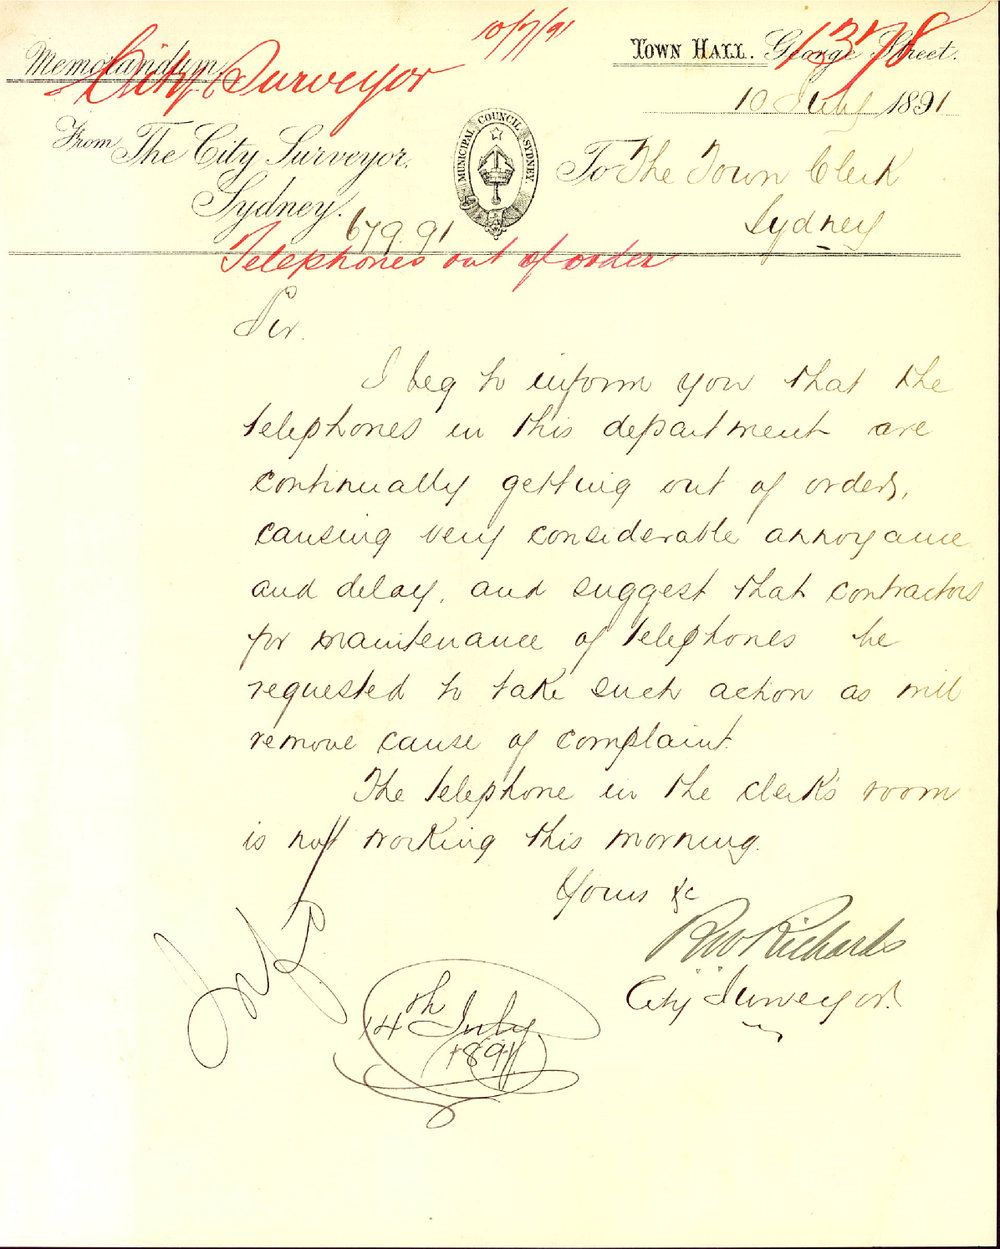 10/7/91
1378
Memorandum.
City Surveyor
TOWN HALL. George Street.
10 July 1891
From The City Surveyor,
Sydney.
MUNICIPAL COUNCIL SYDNEY.
To The Town Clerk
Sydney
679.91
Telephones out of order
Sir.
I beg to inform you that the
telephones in this department are
continually getting out of order,
causing very considerable annoyance
and delay, and suggest that contractors
for maintenance of telephones be
requested to take such action as will
remove cause of complaint.
The telephone in the clerk's room
is not working this morning.
Yours &c
RW Richards
City Surveyor.
14th July
1891